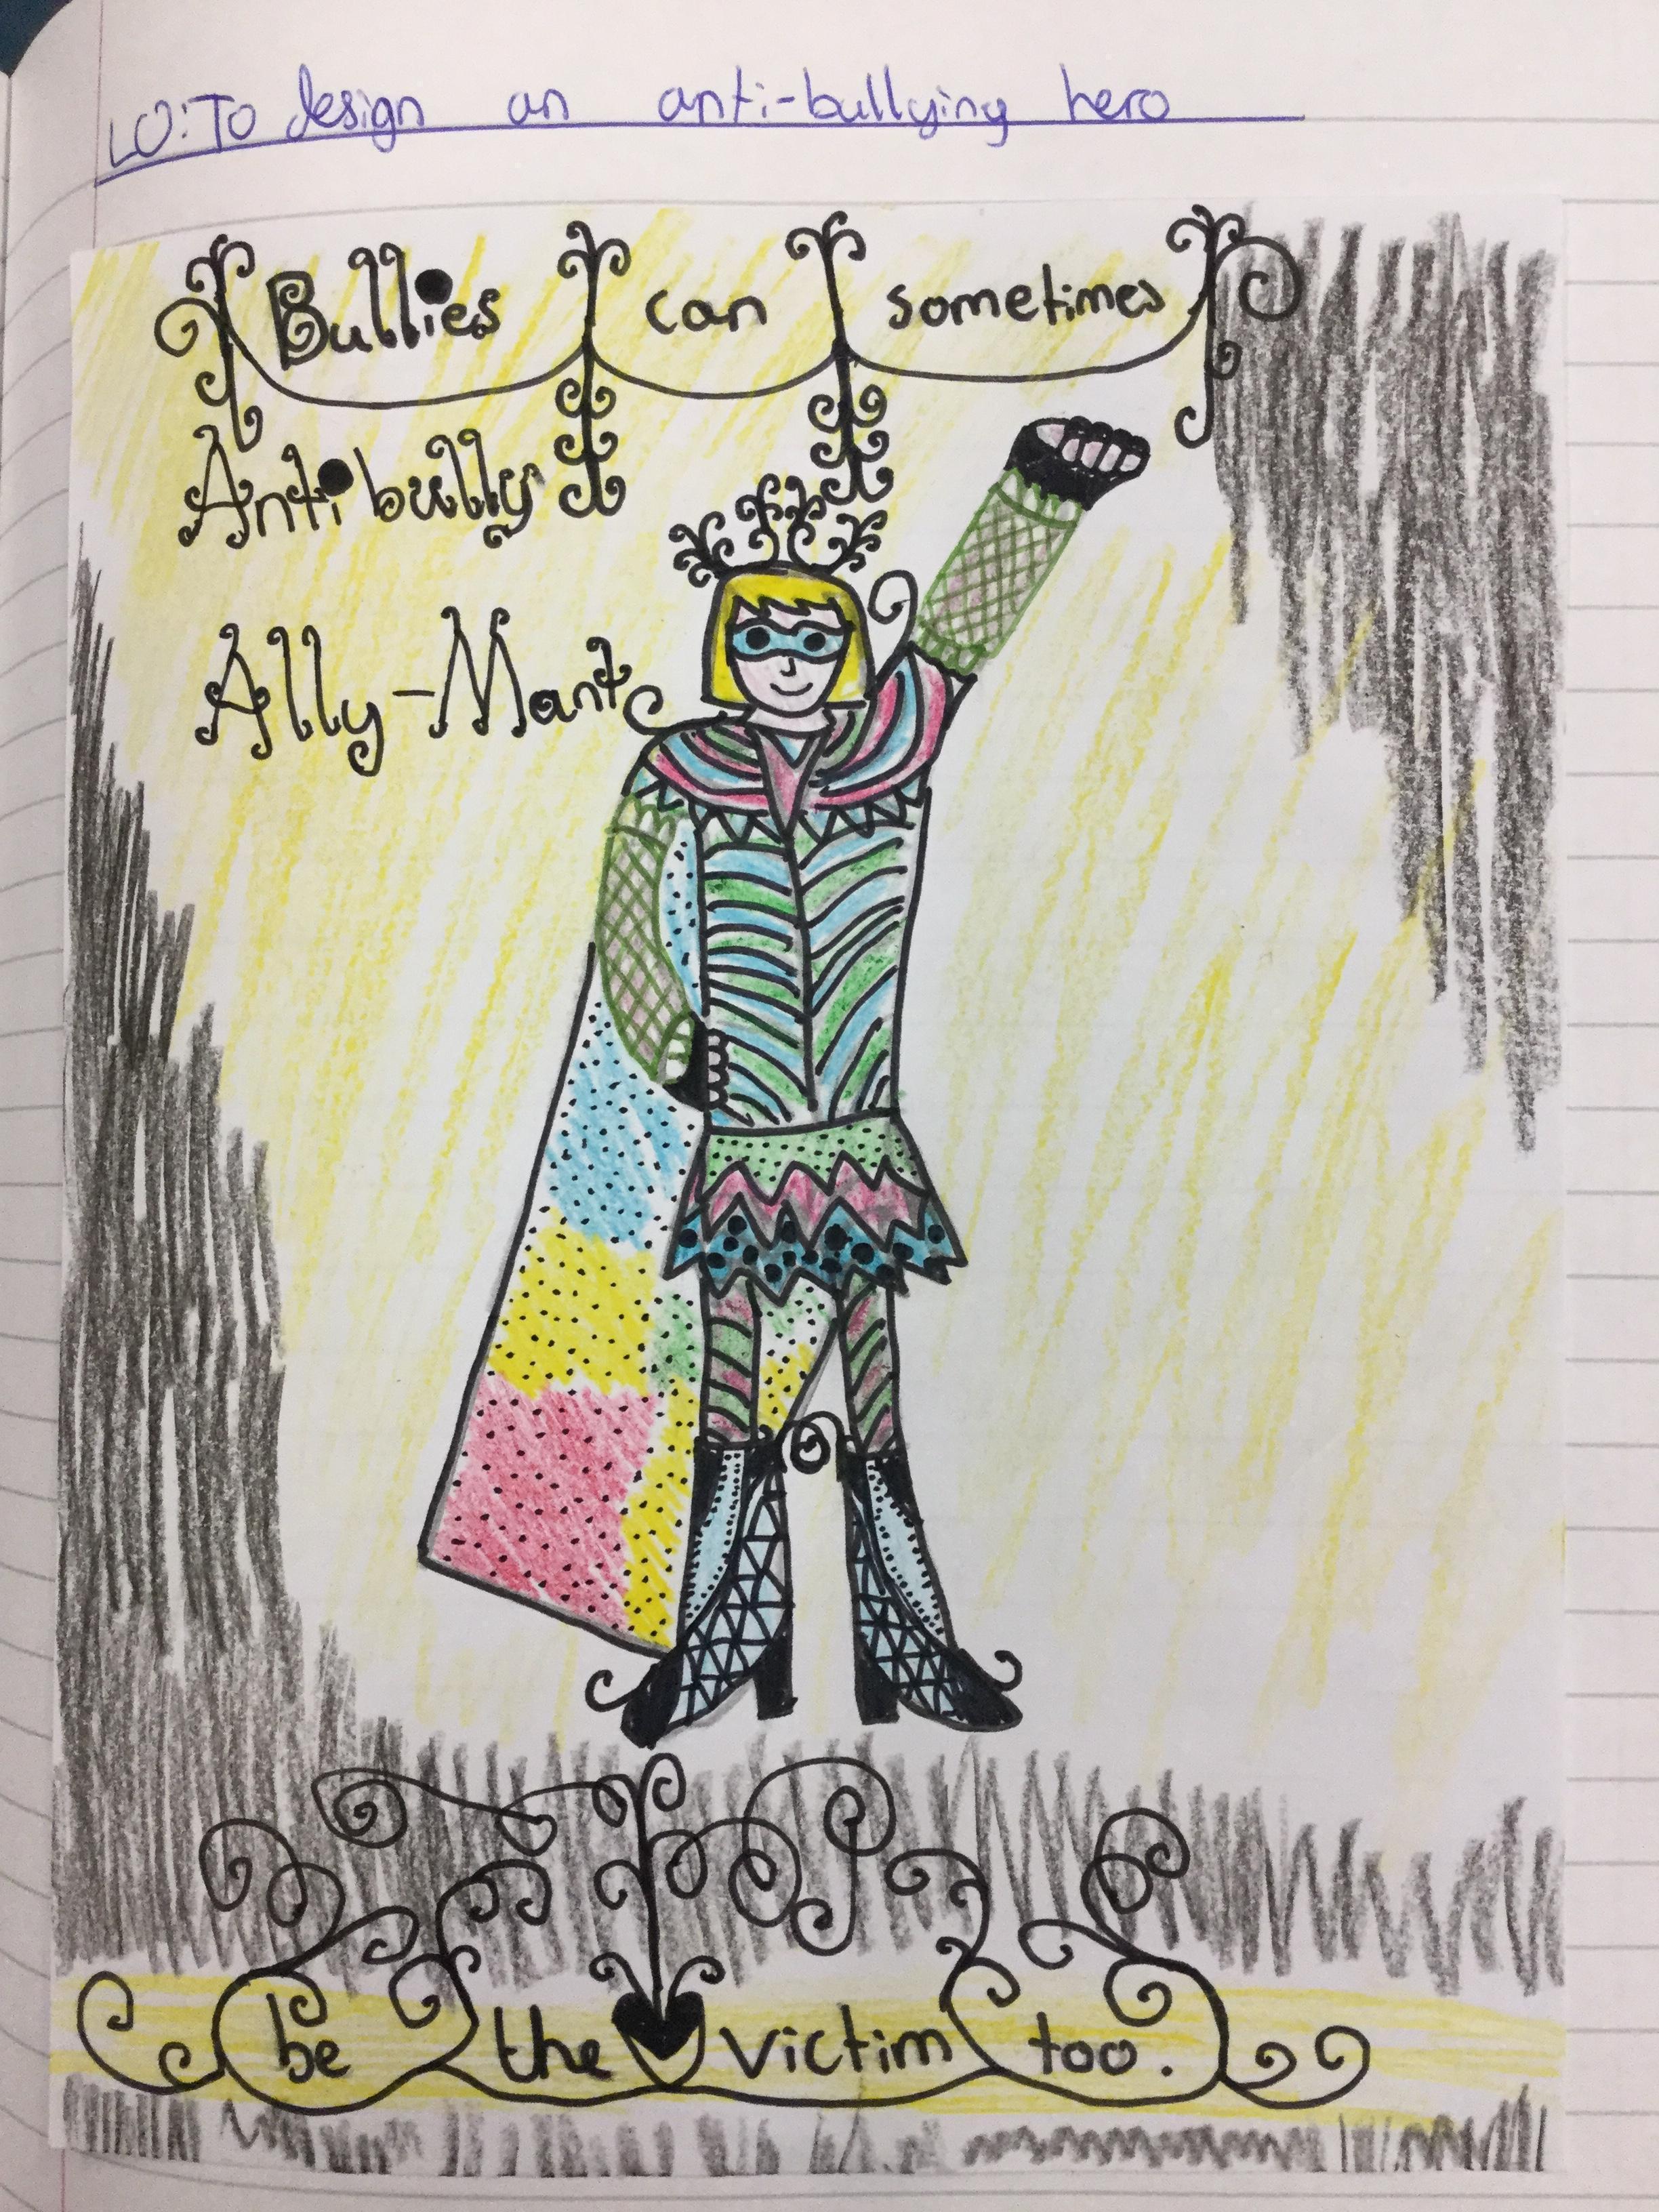 LO: To design an anti-bullying hero
Bullies can sometimes
Antibully
Ally-Mante
be the victim too.